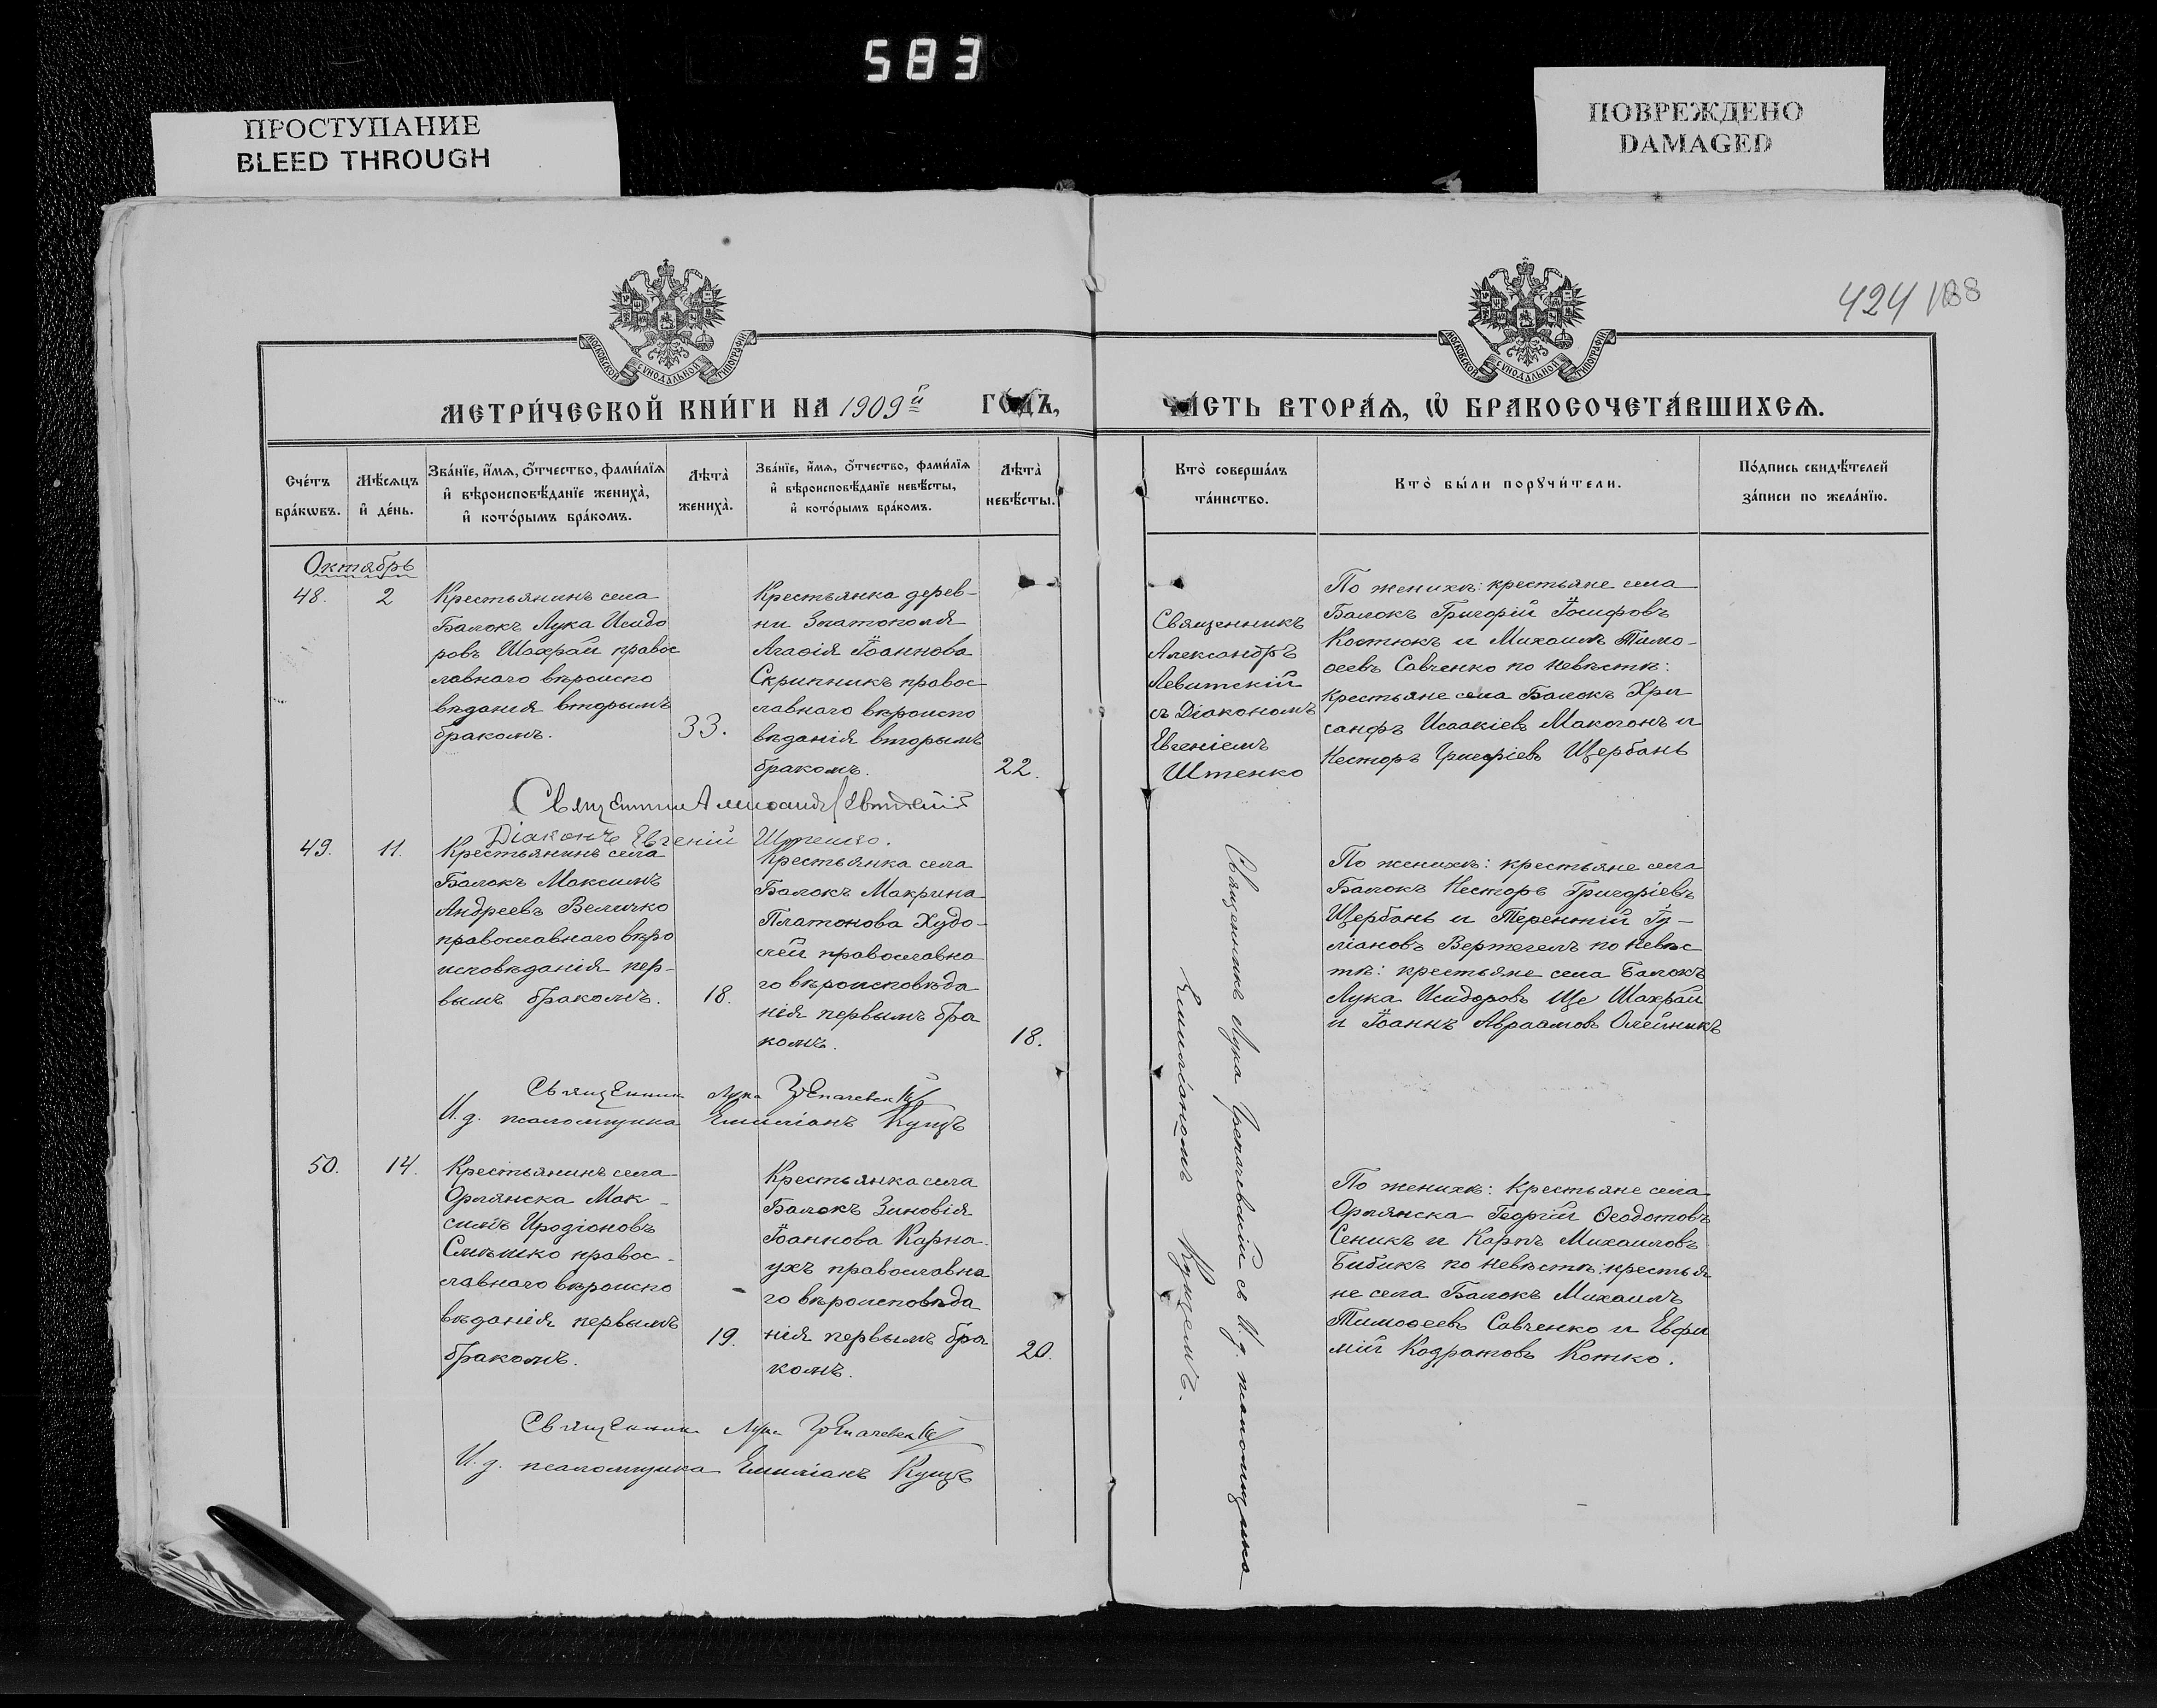 583
ПРОСТУПАНИЕ
BLEED THROUGH
ПОВРЕЖДЕНО
DAMAGED
424 188
МОСКОВСКОЙ СѴНОДАЛЬНОЙ ТИПОГРАФІИ
МОСКОВСКОЙ СѴНОДАЛЬНОЙ ТИПОГРАФІИ
МЕТРИ́ЧЕСКОЙ КНИ́ГИ НА 1909й ГО́ДЪ,
ЧА́СТЬ ВТОРА́Ѧ, Ѡ҆ БРАКОСОЧЕТА́ВШИХСѦ.
Сче́тъ
бра́кѡвъ.
Мѣ́сѧцъ
и҆ де́нь.
Зва́нїе, и҆́мѧ, ѻ҆́тчество, фами́лїѧ
и҆ вѣроисповѣ́данїе жениха̀,
и҆ кото́рымъ бра́комъ.
Лѣта̀
жениха̀.
Зва́нїе, и҆́мѧ, ѻ҆́тчество, фами́лїѧ
и҆ вѣроисповѣ́данїе невѣ́сты,
и҆ кото́рымъ бра́комъ.
Лѣта̀
невѣ́сты.
Кто̀ соверша́лъ
та́инство.
Кто̀ бы́ли порꙋчи́тели.
По́дпись свидѣ́телей
за́писи по жела́нїю.
Октябрь
48.
2
Крестьянинъ села
Балокъ Лука Исидо
ровъ Шахрай правос
лавнаго вѣроиспо
вѣданія вторымъ
бракомъ.
33.
Крестьянка дерев-
ни Златополя
Агаѳія Іоаннова
Скрипникъ правос
лавнаго вѣроиспо
вѣданія вторымъ
бракомъ.
22.
Священникъ
Александръ
Левитскій
съ Діакономъ
Евгеніемъ
Иштенко
По женихѣ: крестьяне села
Балокъ Григорій Іосифовъ
Костюкъ и Михаилъ Тимо-
ѳеевъ Савченко по невѣстѣ:
крестьяне села Балокъ Хри
санфъ Исаакіевъ Макогонъ и
Несторъ Григоріевъ Щербань
Діаконъ Евгеній
49.
11.
Крестьянинъ села
Балокъ Максимъ
Андреевъ Величко
православнаго вѣро
исповѣданія пер-
вымъ бракомъ.
18.
Крестьянка села
Балокъ Макрина
Платонова Худо-
лей православна
го вѣроисповѣда
нія первымъ бра
комъ.
18.
Священникъ Лука съ И. д. псаломщика
Емиліаномъ Кущемъ.
По женихѣ: крестьяне села
Балокъ Несторъ Григоріевъ
Щербань и Терентій Іу-
ліановъ Вертегелъ по невѣс
тѣ: крестьяне села Балокъ
Лука Исидоровъ Ще Шахрай
и Іоаннъ Авраамовъ Олейникъ
Священникъ Лука
И. д. псаломщика Емиліанъ Кущъ
50.
14.
Крестьянинъ села
Орлянска Мак-
симъ Иродіоновъ
Слишко правос-
лавнаго вѣроиспо
вѣданія первымъ
бракомъ.
19.
Крестьянка села
Балокъ Зиновія
Іоаннова Карна
ухъ православна
го вѣроисповѣда
нія первымъ бра
комъ.
20.
По женихѣ: крестьяне села
Орлянска Георгій Ѳеодотовъ
Сеникъ и Карпъ Михаиловъ
Бибикъ по невѣстѣ: крестья
не села Балокъ Михаилъ
Тимоѳеевъ Савченко и Евфи
мій Кодратовъ Котко.
Священникъ Лука
И. д. псаломщика Емиліанъ Кущъ